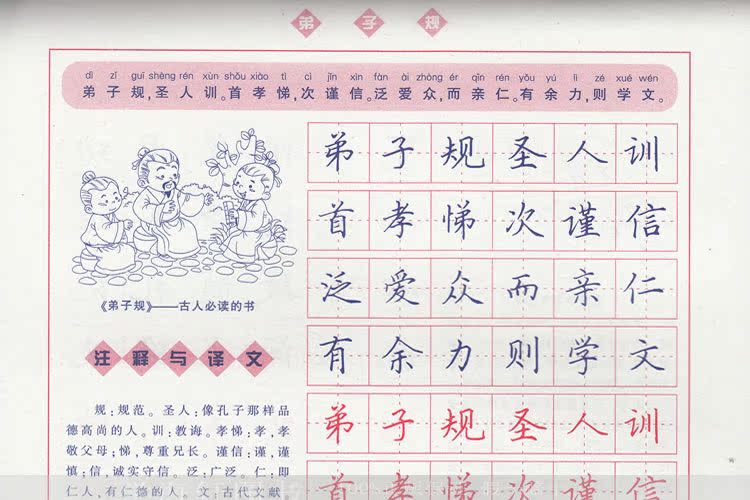 弟子规
dì zǐ guī shèng rén xùn shǒu xiào tì cì jǐn xìn fàn ài zhòng ér qīn rén yǒu yú lì zé xué wén
弟子规,圣人训。首孝悌,次谨信。泛爱众,而亲仁。有余力,则学文。
弟子规圣人训
首孝悌次谨信
泛爱众而亲仁
有余力则学文
弟子规圣人训
首孝悌次谨信
《弟子规》——古人必读的书
注释与译文
规:规范。圣人:像孔子那样品
德高尚的人。训:教诲。孝悌:孝,孝
敬父母;悌,尊重兄长。谨信:谨,谨
慎;信,诚实守信。泛:广泛。仁:即
仁人,有仁德的人。文:古代文献